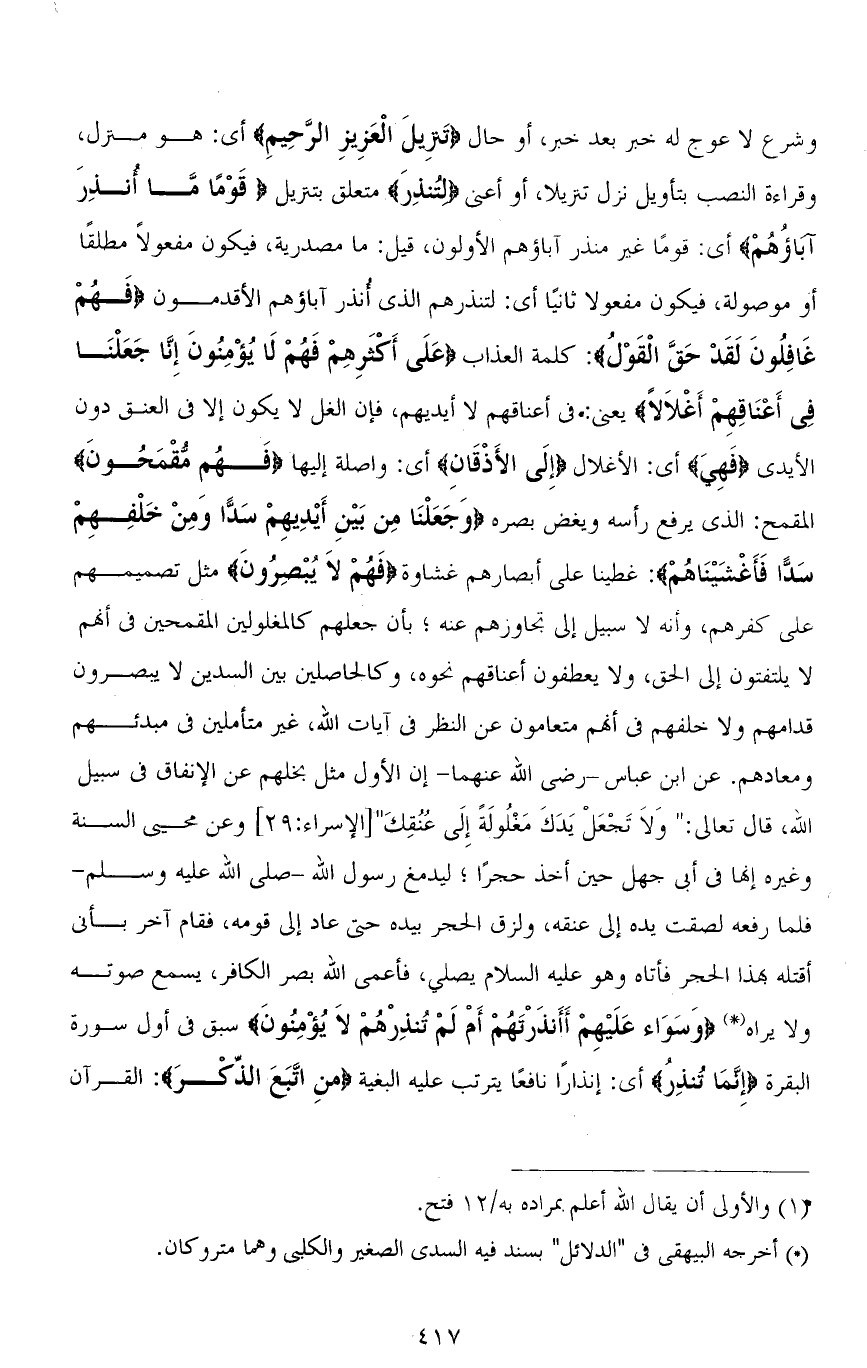 وشرع لا عوج له خبر بعد خبر، أو حال ﴿تَنزِيلَ الْعَزِيزِ الرَّحِيمِ﴾ أى: هـــو مـــترل،
وقراءة النصب بتأويل نزل تنزيلا، أو أعنى ﴿لِتُنذِرَ﴾ متعلق بتنزيل ﴿ قَوْمًا مَّـــا أُنـــذِرَ
آبَاؤُهُمْ﴾ أى: قومًا غير منذر آباؤهم الأولون، قيل: ما مصدرية، فيكون مفعولاً مطلقًا
أو موصولة، فيكون مفعولا ثانيًا أى: لتنذرهم الذى أُنذر آباؤهم الأقدمـــون ﴿فَـــهُمْ
غَافِلُونَ لَقَدْ حَقَّ الْقَوْلُ﴾: كلمة العذاب ﴿عَلَى أَكْثَرِهِمْ فَهُمْ لَا يُؤْمِنُونَ إِنَّا جَعَلْنَـــا
فِى أَعْنَاقِهِمْ أَغْلَالاً﴾ يعنى: فى أعناقهم لا أيديهم، فإن الغل لا يكون إلا فى العنـق دون
الأيدى ﴿فَهِيَ﴾ أى: الأغلال ﴿إِلَى الأَذْقَانِ﴾ أى: واصلة إليها ﴿فَـــهُم مُّقْمَحُـــونَ﴾
المقمح: الذى يرفع رأسه ويغض بصره ﴿وَجَعَلْنَا مِن بَيْنِ أَيْدِيهِمْ سَدًّا وَمِنْ خَلْفِـــهِمْ
سَدًّا فَأَغْشَيْنَاهُمْ﴾: غطينا على أبصارهم غشاوة ﴿فَهُمْ لاَ يُبْصِرُونَ﴾ مثل تصميمـــهم
على كفرهم، وأنه لا سبيل إلى تجاوزهم عنه ؛ بأن جعلهم كالمغلولين المقمحين فى أنهم
لا يلتفتون إلى الحق، ولا يعطفون أعناقهم نحوه، وكالحاصلين بين السدين لا يبصـــرون
قدامهم ولا خلفهم فى أنهم متعامون عن النظر فى آيات الله، غير متأملين فى مبدئـــهم
ومعادهم. عن ابن عباس -رضى الله عنهما- إن الأول مثل بخلهم عن الإنفاق فى سبيل
الله، قال تعالى:" وَلاَ تَجْعَلْ يَدَكَ مَغْلُولَةً إِلَى عُنُقِكَ"[الإسراء:٢٩] وعن محيـــى الســـنة
وغيره إنها فى أبى جهل حين أخذ حجرًا ؛ ليدمغ رسول الله -صلى الله عليه وســـلم-
فلما رفعه لصقت يده إلى عنقه، ولزق الحجر بيده حتى عاد إلى قومه، فقام آخر بـــأنى
أقتله بهذا الحجر فأتاه وهو عليه السلام يصلي، فأعمى الله بصر الكافر، يسمع صوتـــه
ولا يراه(*) ﴿وَسَوَاء عَلَيْهِمْ أَأَنذَرْتَهُمْ أَمْ لَمْ تُنذِرْهُمْ لاَ يُؤْمِنُونَ﴾ سبق فى أول ســـورة
البقرة ﴿إِنَّمَا تُنذِرُ﴾ أى: إنذارًا نافعًا يترتب عليه البغية ﴿مَنِ اتَّبَعَ الذِّكْـــرَ﴾: القـــرآن
(١) والأولى أن يقال الله أعلم بمراده به/١٢ فتح.
(*) أخرجه البيهقى فى "الدلائل" بسند فيه السدى الصغير والكلبى وهما متروكان.
٤١٧